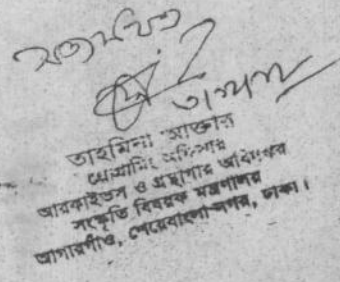 সত্যায়িত
তাহমিনা আক্তার
প্রোগ্রামিং অফিসার
আরকাইভস ও গ্রন্থাগার অধিদপ্তর
সংস্কৃতি বিষয়ক মন্ত্রণালয়
আগারগাঁও, শেরেবাংলা নগর, ঢাকা।